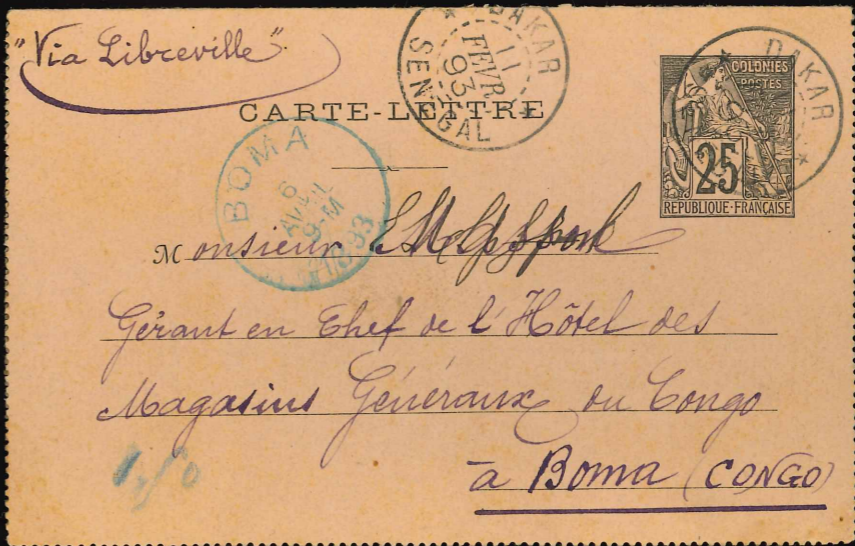 "Via Libreville"
DAKAR
11
FEVR
93
SENEGAL
COLONIES
POSTES
25
REPUBLIQUE-FRANÇAISE
DAKAR
CARTE-LETTRE
BOMA
6
AVRIL
9-M
1893
Monsieur
Gérant en Chef de l'Hôtel des
Magasins Généraux du Congo
à Boma (CONGO)